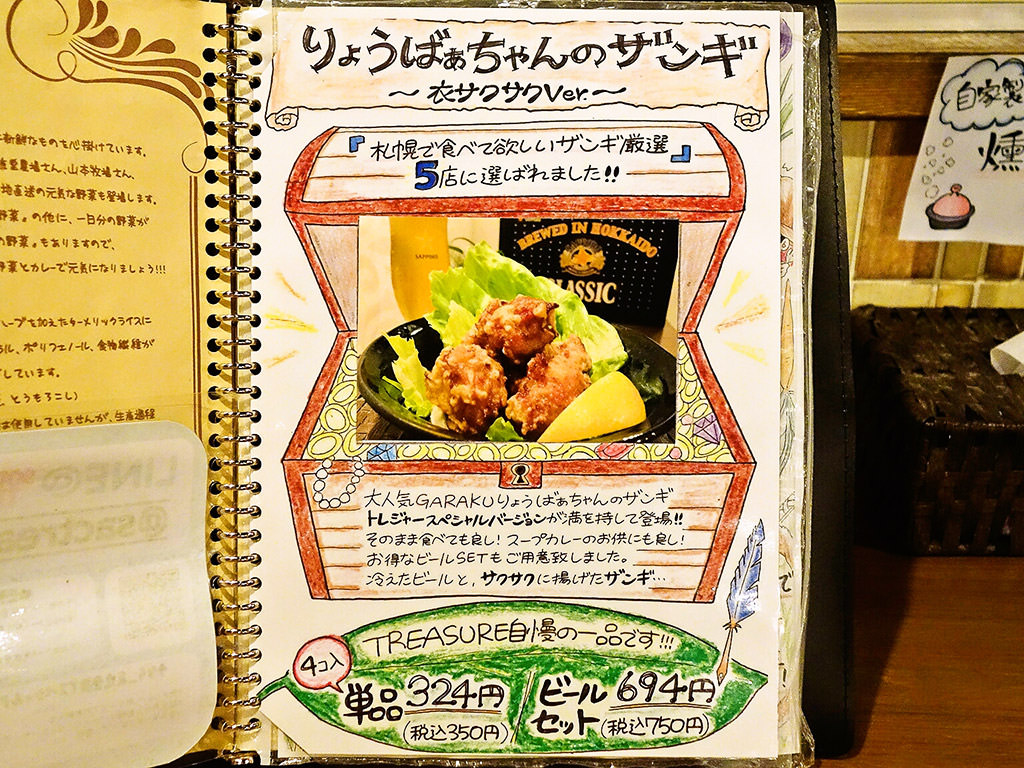 りょうばぁちゃんのザンギ
～衣サクサクVer.～
『札幌で食べて欲しいザンギ厳選
5店に選ばれました!!』
SAPPORO
BREWED IN HOKKAIDO
CLASSIC
大人気GARAKUりょうばぁちゃんのザンギ
トレジャースペシャルバージョンが満を持して登場!!
そのまま食べても良し!スープカレーのお供にも良し!
お得なビールSETもご用意致しました。
冷えたビールと、サクサクに揚げたザンギ…
TREASURE自慢の一品です!!!
4コ入
単品324円
(税込350円)
ビールセット694円
(税込750円)
新鮮なものを心掛けています。
農場さん、山本牧場さん、
地直送の元気な野菜も登場します。
野菜』の他に、一日分の野菜が
の野菜』もありますので、
野菜とカレーで元気になりましょう!!!
ハーブを加えたターメリックライスに
ル、ポリフェノール、食物繊維が
しています。
とうもろこし)
は使用していませんが、生産過程
自家製
燻